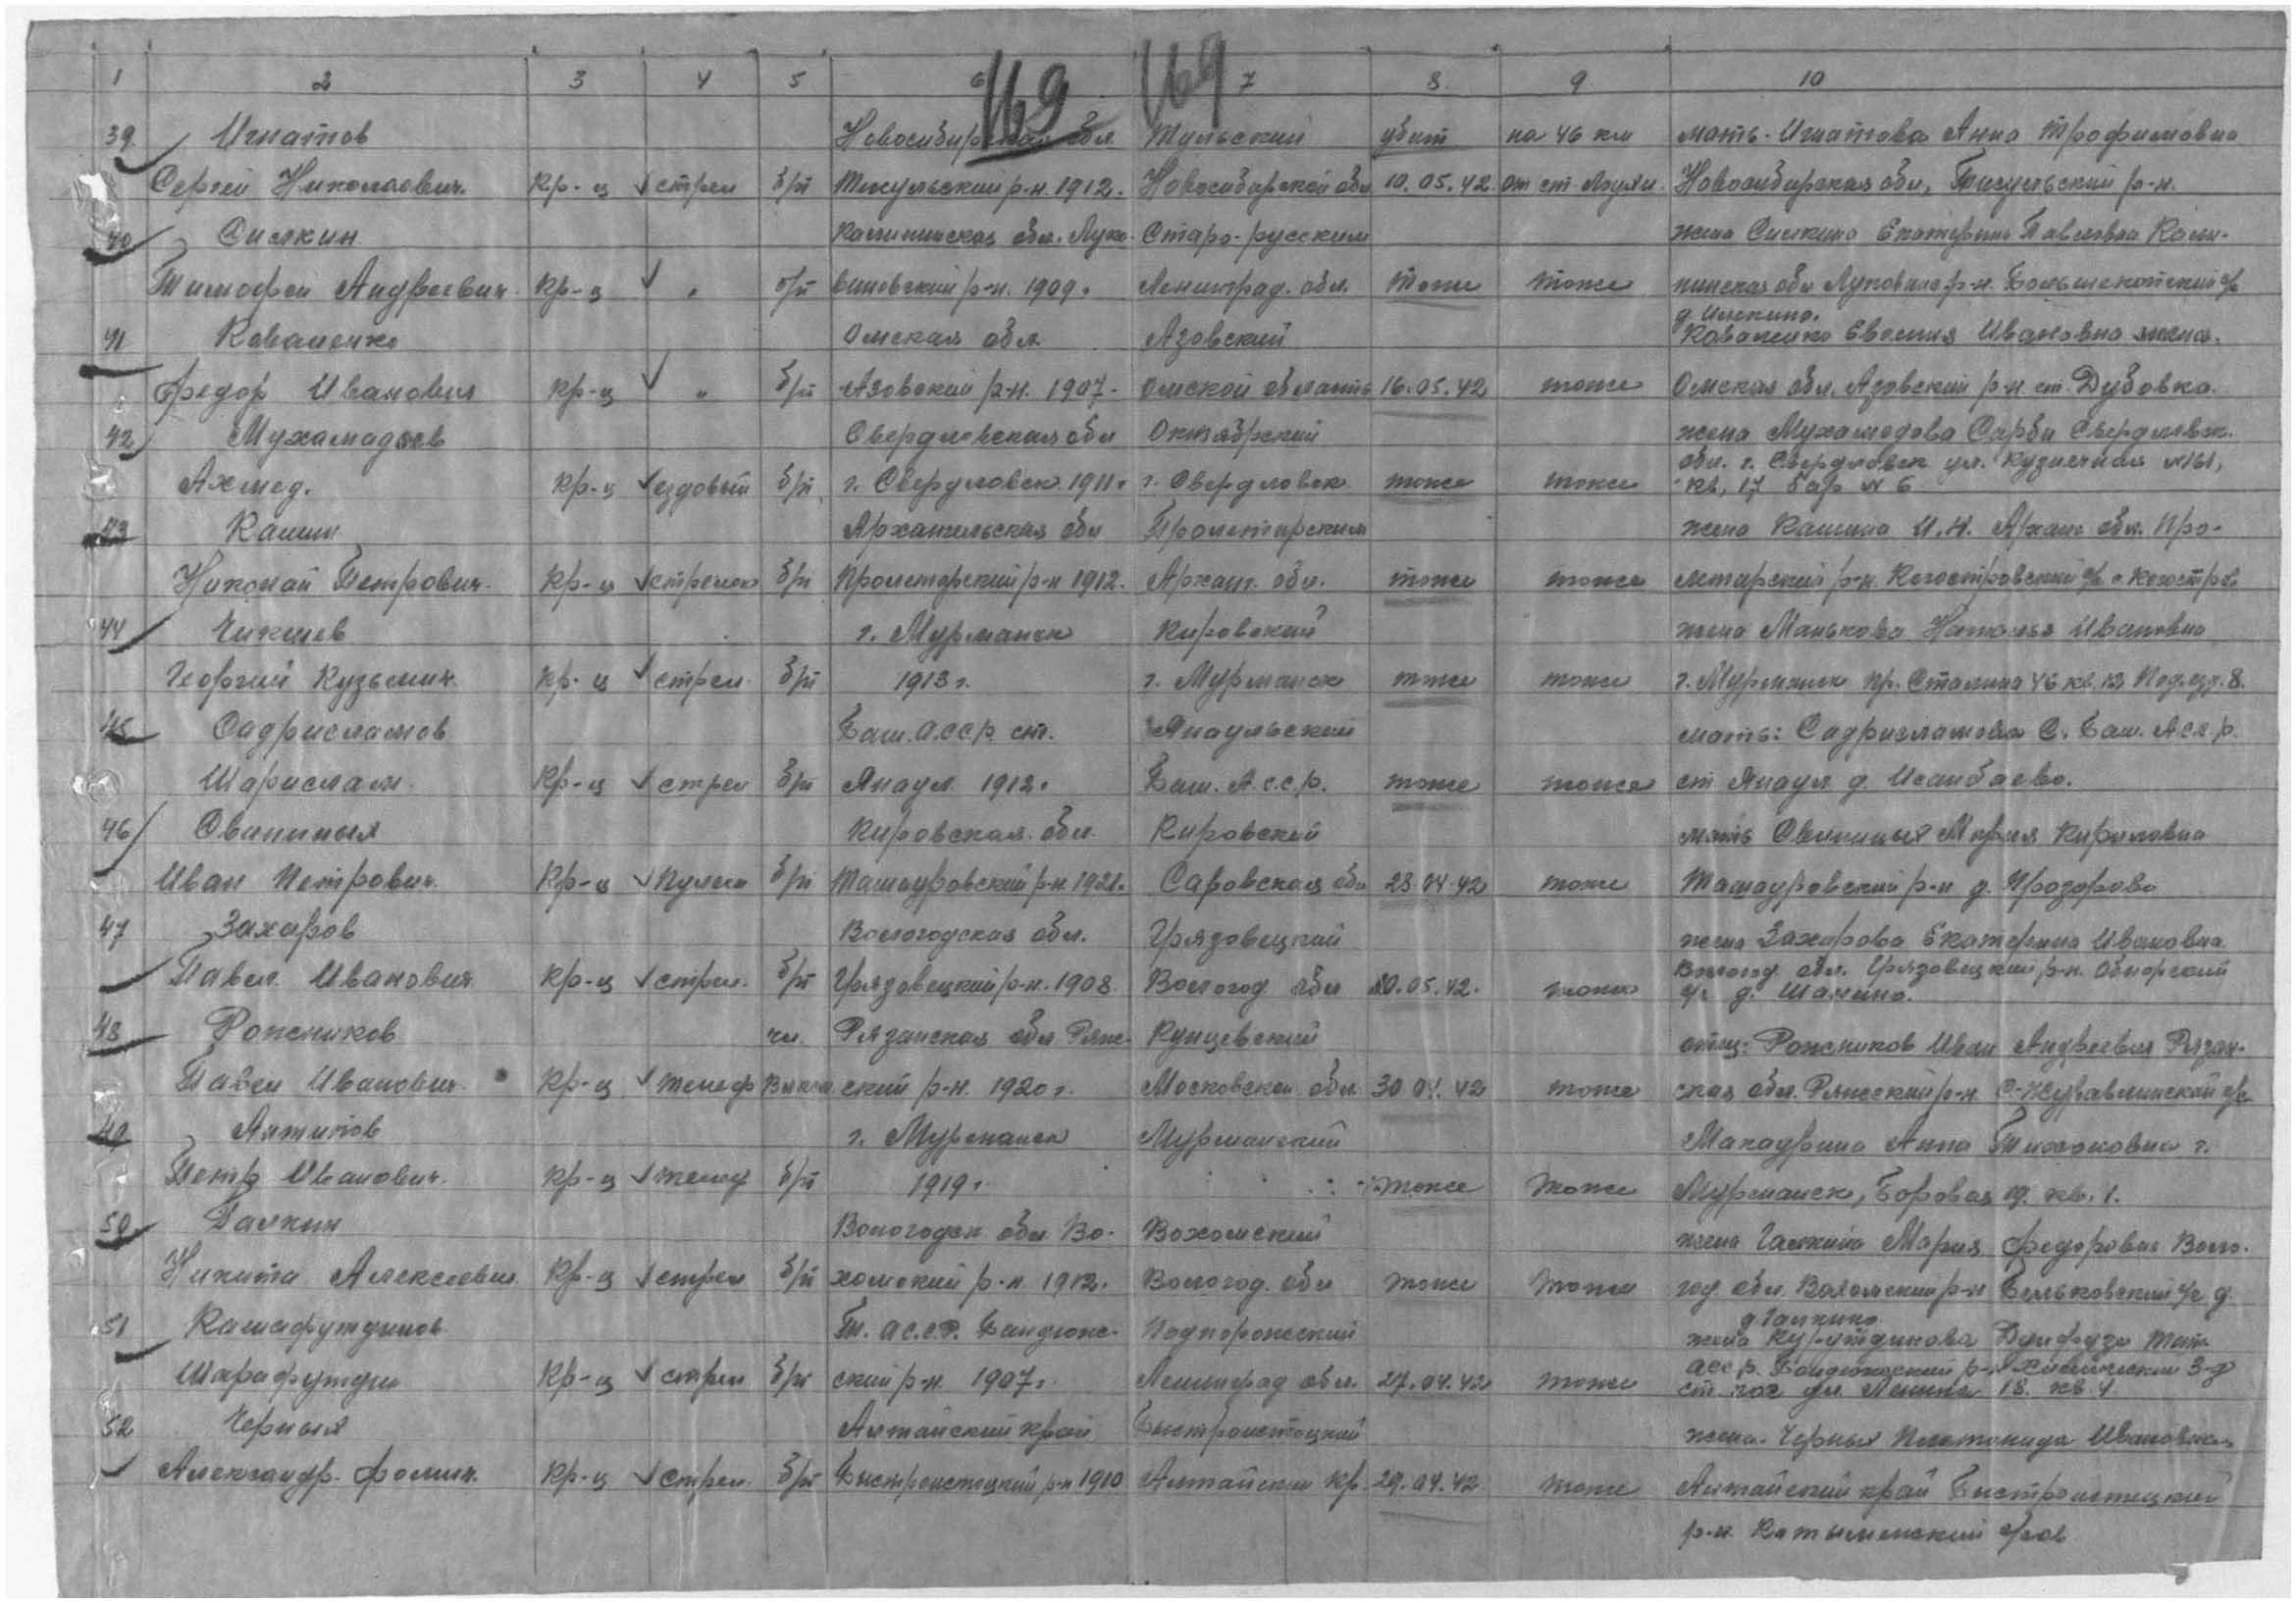 1 2 3 4 5 6 7 8. 9 10
169 169
39 Игнатов Новосибирская обл Тульский убит на 46 км мать - Игнатова Анна Трофимовна
Сергей Николаевич. кр-ц стрел б/п Тисульский р-н. 1912. Новосибирской обл 10.05.42 от ст. Лоухи. Новосибирская обл, Тисульский р-н.
40 Силкин Калининская обл. Луко- Старо-русским жена Силкина Екатерина Павловна Кали-
Тимофей Андреевич кр-ц " б/п 1909. Ленинград. обл. тоже тоже нинская обл
41 Коваленко Омская обл. Азовский Коваленко Ивановна жена.
Федор Иванович кр-ц " б/п Азовский р-н. 1907- Омской область 16.05.42 тоже Омская обл. Азовский р-н ст. Дубовка.
42 Мухамадеев Свердловская обл Октябрский жена Мухамедова Сарби Свердловск.
обл. г. Свердловск ул. Кузнечная №161,
Ахмед. кр-ц ездовый б/п г. Свердловск 1911. г. Свердловск тоже тоже кв, 17 бар № 6
43 Кашин Архангельская обл Пролетарским жена Кашина И.Н. Арханг обл. Про-
Николай Петрович. кр-ц стрелок б/п Пролетарский р-н 1912. Арханг. обл. тоже тоже летарский р-н. Кегостровский с/с
44 Чикшев г. Мурманск Кировский жена Манькова Наталья Ивановна
Георгий Кузьмич. кр-ц стрел б/п 1913г. г. Мурманск тоже тоже г. Мурманск пр. Сталина 46 кв. 13 Под.езд. 8.
45 Садрисламов Баш. АССР. ст. Янаульский мать: Садрисламова С. Баш. АССР.
Шарислам. кр-ц стрел б/п Янаул 1912. Баш. А.С.С.Р. тоже тоже ст Янаул д. Исанбаево.
46 Свининых Кировская обл. Кировский мать Свининых Мария Кириловна
Иван Петрович. кр-ц Пулем б/п р-н 1921. обл 28.04.42 тоже р-н д. Прозорово
47 Захаров Вологодская обл. Грязовецкий жена Захарова Екатерина Ивановна
Вологод. обл. Грязовецкий р-н. Обнорский
Павел Иванович кр-ц стрел. б/п Грязовецкий р-н. 1908. Вологод обл 20.05.42. тоже с/с д. Шанино.
48 Рожников чл. Рязанская обл Ряж- Кунцевский отец: Рожников Иван Андреевич Рязан-
Павел Иванович кр-ц телеф ский р-н. 1920г. Московской обл. 30 04. 42 тоже ская обл. Ряжский р-н с/с
49 Антипов г. Мурманск Мурманский Макаурина Анна Тихоновна г.
Петр Иванович. кр-ц телеф б/п 1919. тоже тоже Мурманск, Боровая 19. кв. 1.
50 Галкин Вологодск обл. Во- Вохомский жена Галкина Мария Федоровна Воло-
Никита Алексеевич кр-ц стрел б/п хомский р-н. 1912. Вологод. обл тоже тоже год обл. Вохомский р-н Бельковский с/с д
д Галкино.
51 Камафутдинов Т. АС.С.Р. Бондюж- Подпорожский жена Тат.
Шарафутдин кр-ц стрел б/п ский р-н. 1907г. Ленинград обл. 27.04.42 тоже АССР. Бондюжский р-н Химический З-д
ул. Ленина 18. кв 4.
52 Черных Алтайский край Быстроистоцкий жена. Черных Ивановна
Александр Фомич. кр-ц стрел. б/п Быстроистоцкий р-н 1910 Алтайский кр. 29.04.42 тоже Алтайский край Быстроистоцкий
р-н.